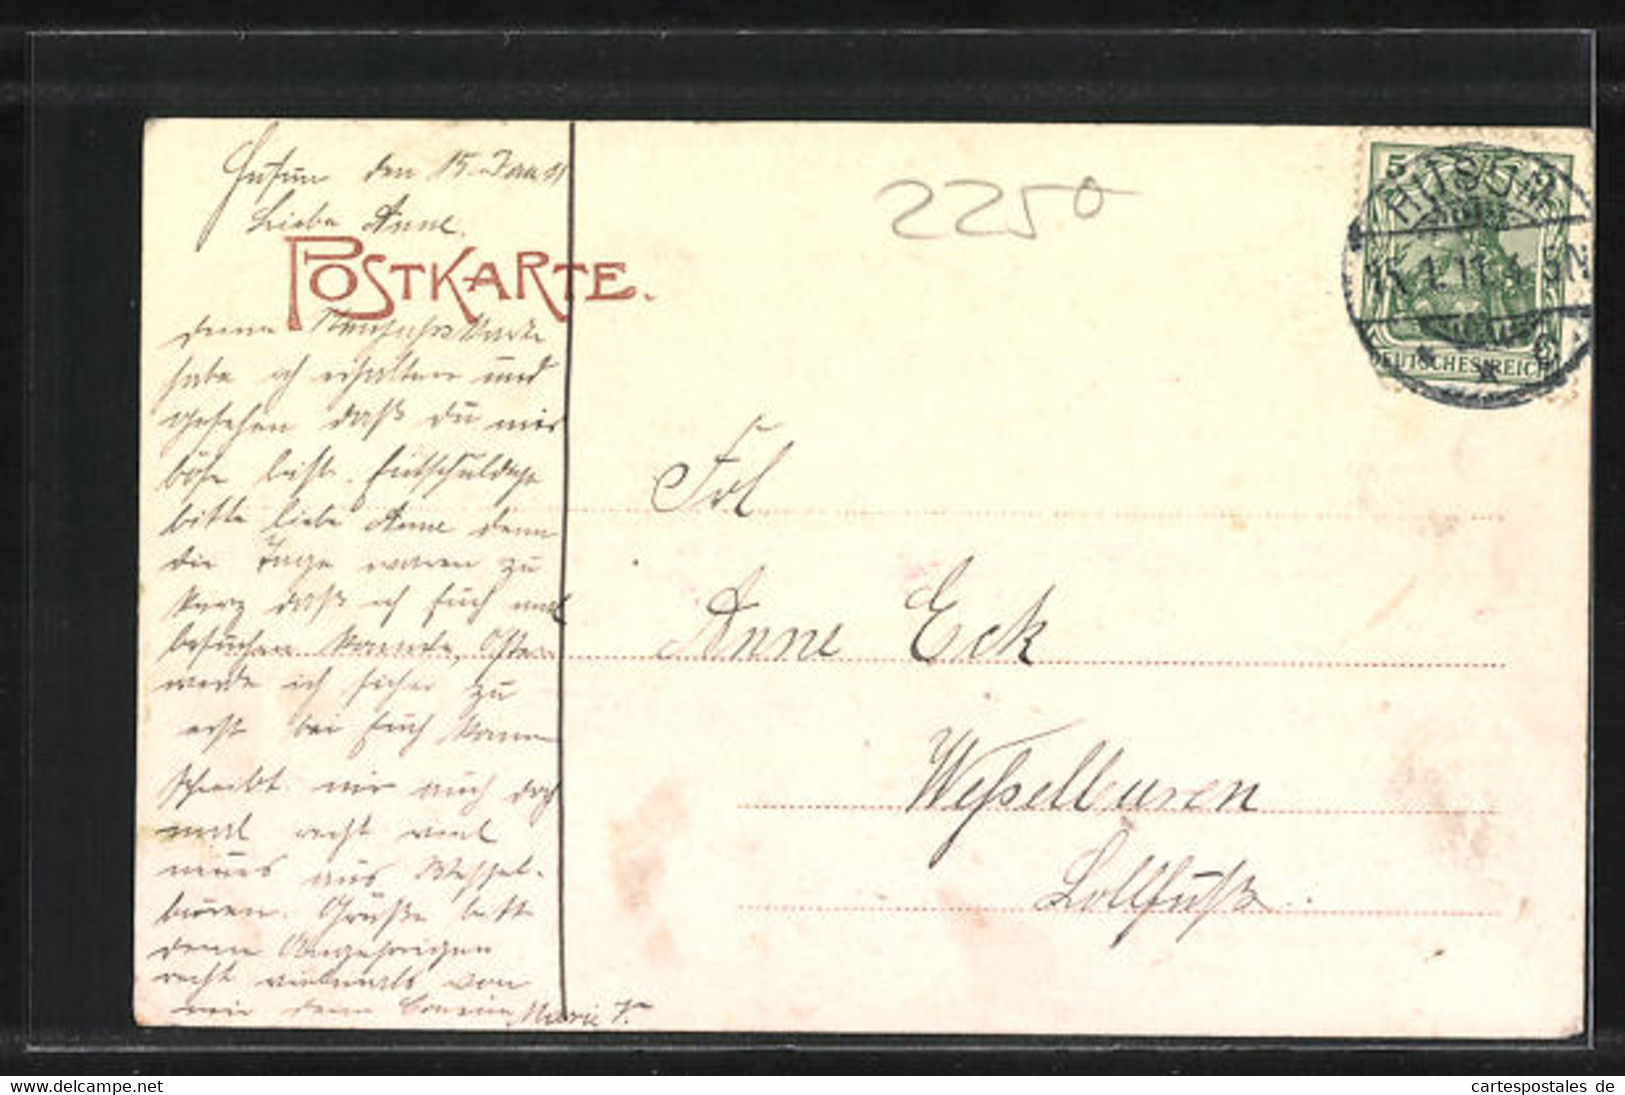 Husum den 15. Jan 11
Liebe Anne.
POSTKARTE.
deine Neujahrskarte
habe ich erhalten und
gesehen daß du mir
böse bist. Entschuldige
bitte liebe Anne denn
die Tage waren zu
kurz daß ich Euch mal
besuchen konnte, Ostern
werde ich sicher zu
erst bei Euch kommen
schreibt mir auch doch
mal recht viel
neues aus Wesselburen. Grüße bitte
deine Angehörigen
recht vielmals von
mir deine Cousine Marie T.
2250
5 5
HUSUM
15.1.11.4-5N
DEUTSCHES REICH
Frl
Anne Eck
Wesselburen
Lollfuß.
www.delcampe.net
cartespostales de